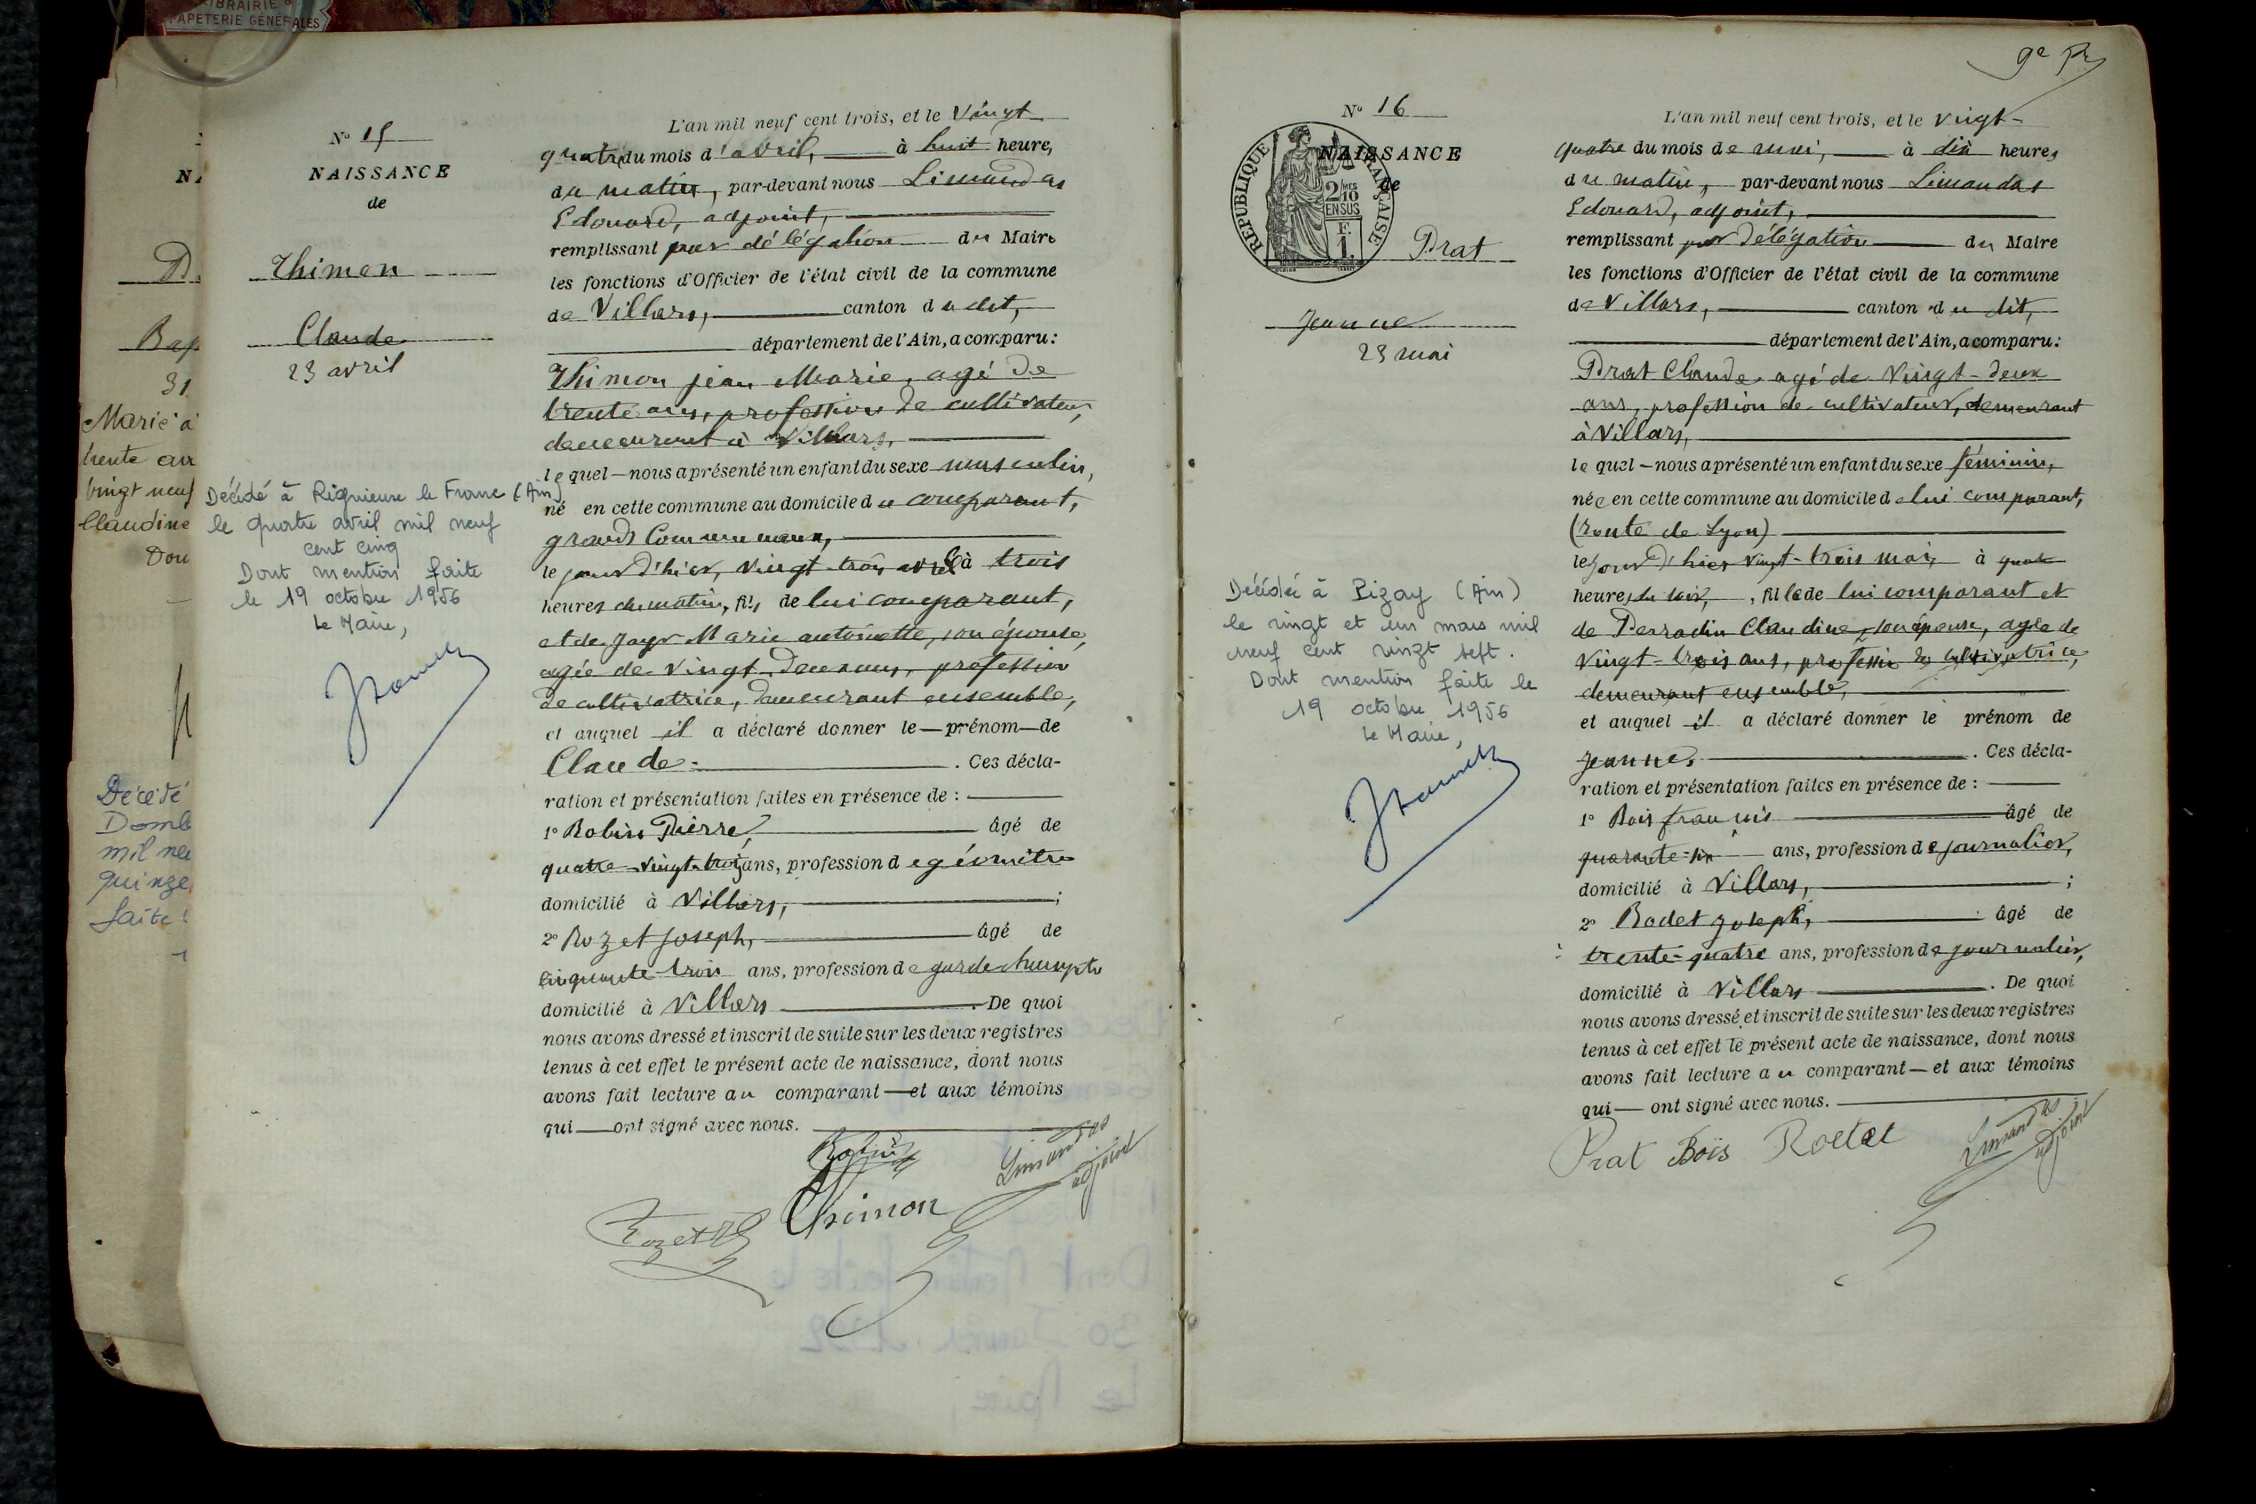 LIBRAIRIE &
PAPETERIE GÉNÉRALES
Bap
31
Marie a
trente an
vingt neuf
Claudine
Don
Décédé
Domb
mil ne
quinze
faite
N° 15
NAISSANCE
de
Thimon
Claude
23 avril
Décédé à Rignieux le Franc (Ain)
le quatre avril mil neuf
cent cinq
Dont mention faite
le 19 octobre 1956
Le Maire,
L'an mil neuf cent trois, et le vingt
quatre du mois d'avril, à huit heures,
du matin, par-devant nous Limandas
Edouard, adjoint,
remplissant par délégation du Maire
les fonctions d'Officier de l'état civil de la commune
de Villars, canton du dit,
département de l'Ain, a comparu :
Thimon Jean Marie, agé de
trente ans, profession de cultivateur,
demeurant à Villars,
lequel nous a présenté un enfant du sexe masculin,
né en cette commune au domicile du comparant,
grands Communaux,
le jour d'hier, vingt-trois avril à trois
heures du matin, fils de lui comparant,
et de Marie antoinette, son épouse,
agée de vingt-deux ans, profession
de cultivatrice, demeurant ensemble,
et auquel il a déclaré donner le prénom de
Claude. Ces décla-
ration et présentation faites en présence de :
1° Robin Pierre, âgé de
quatre-vingt-trois ans, profession de géomètre
domicilié à Villars, ;
2° Rozet Joseph, âgé de
cinquante-trois ans, profession de garde champêtre
domicilié à Villars. De quoi
nous avons dressé et inscrit de suite sur les deux registres
tenus à cet effet le présent acte de naissance, dont nous
avons fait lecture au comparant et aux témoins
qui ont signé avec nous.
Robin
Limandas
adjoint
Thimon
Rozet
9e
N° 16
NAISSANCE
de
RÉPUBLIQUE FRANÇAISE
2/10 MES
EN SUS
F.
1.
Prat
Jeanne
23 mai
Décédée à Pizay (Ain)
le vingt et un mars mil
neuf cent vingt sept.
Dont mention faite le
19 octobre 1956
Le Maire,
L'an mil neuf cent trois, et le vingt-
quatre du mois de mai, à dix heures
du matin, par-devant nous Limandas
Edouard, adjoint,
remplissant par délégation du Maire
les fonctions d'Officier de l'état civil de la commune
de Villars, canton du dit,
département de l'Ain, a comparu :
Prat Claude, agé de vingt-deux
ans, profession de cultivateur, demeurant
à Villars,
lequel nous a présenté un enfant du sexe féminin,
née en cette commune au domicile de lui comparant,
(route de Lyon)
le jour d'hier vingt-trois mai, à quatre
heures du soir, fille de lui comparant et
de Perradin Claudine, son épouse, agée de
vingt-trois ans, profession de cultivatrice,
demeurant ensemble,
et auquel il a déclaré donner le prénom de
Jeanne. Ces décla-
ration et présentation faites en présence de :
1° Bois françois âgé de
quarante-six ans, profession de journalier,
domicilié à Villars, ;
2° Rodet Joseph, âgé de
trente-quatre ans, profession de journalier,
domicilié à Villars. De quoi
nous avons dressé et inscrit de suite sur les deux registres
tenus à cet effet le présent acte de naissance, dont nous
avons fait lecture au comparant et aux témoins
qui ont signé avec nous.
Prat Bois Rodet
Limandas
adjoint